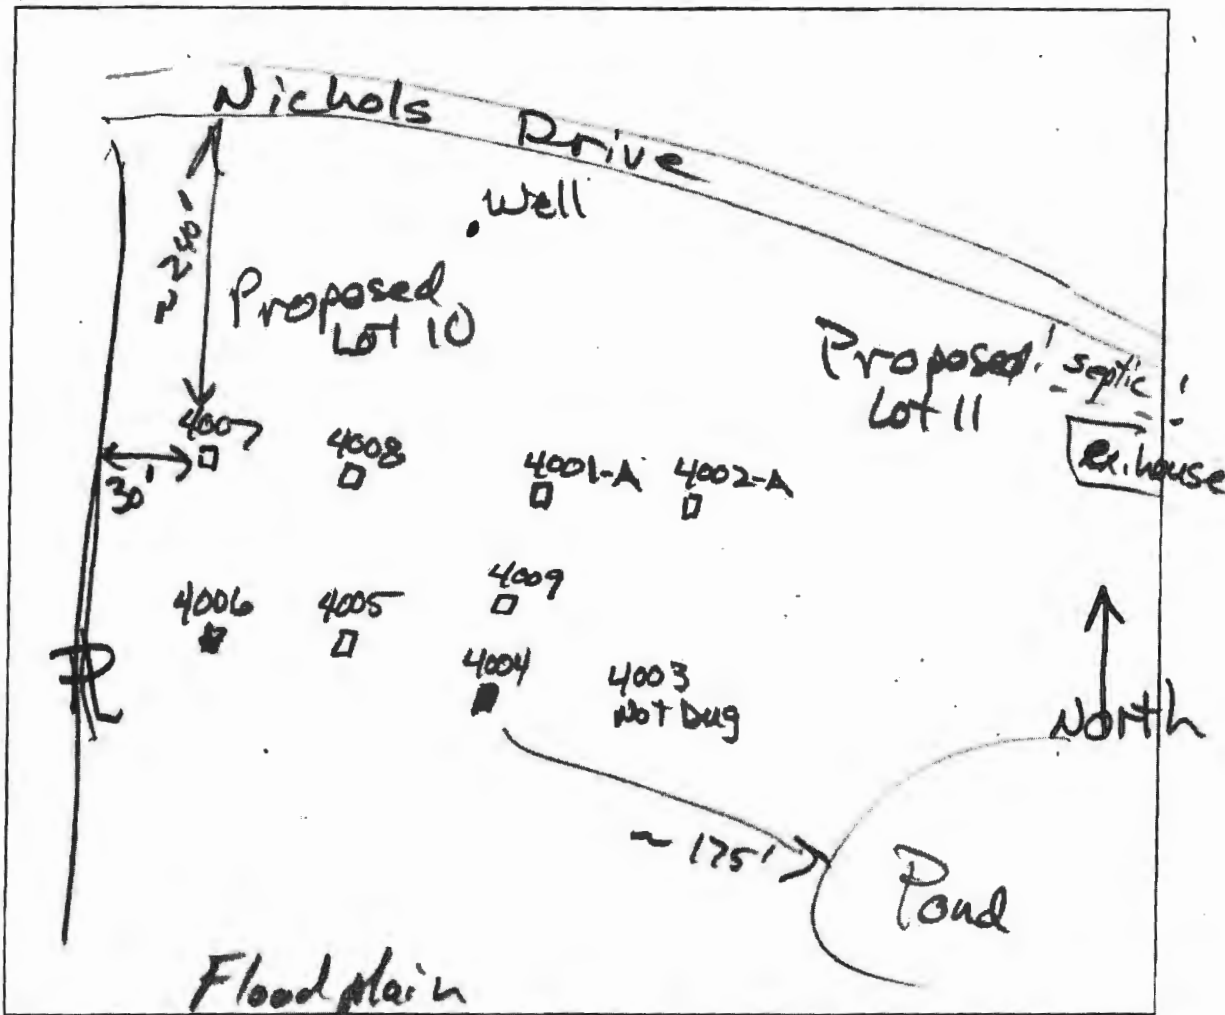 Nichols Drive
. Well
~240'
Proposed
Lot 10
Proposed
Lot 11
septic
ex. house
4007
4008
4001-A
4002-A
30'
4009
4006
4005
4004
4003
Not Dug
PL
North
~175'
Pond
Floodplain